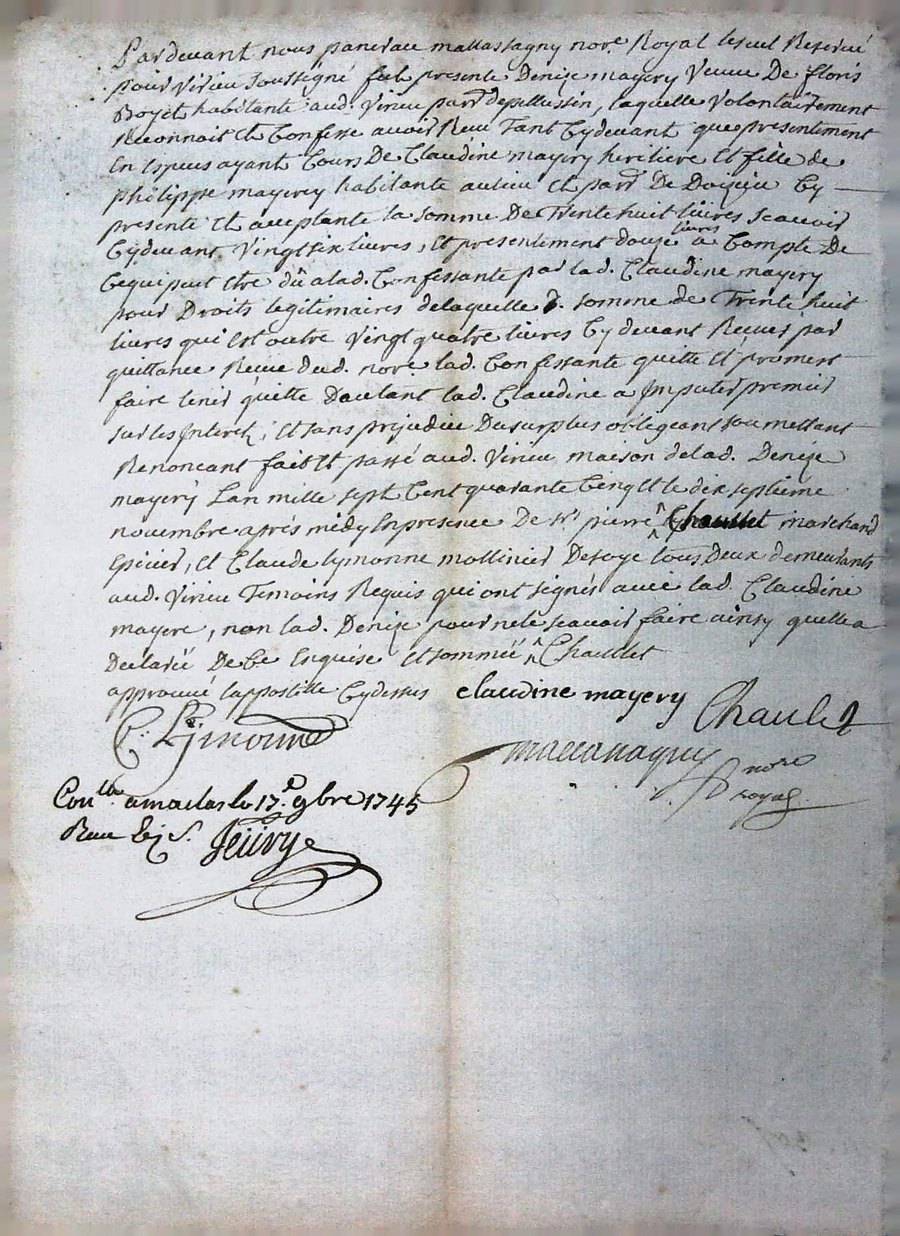 Pardevant nous pancrace mattassagny nore Royal leseul Reservé
pour virieu soussigné fut presente Denize mayery veuve De floris
Boyet habitante aud. virieu parr depellussin, laquelle volontairement
Reconnait et Confesse avoir Receu Tant Cydevant que presentement
En Espuces ayant Cours De Claudine mayery heritiere Et fille de
philippe mayerey habitante au lieu et parr De Doizieu Cy
presente Et acceptante la somme De Trente huit livres scavoir
Cydevant vingt six livres, Et presentement douze livres a Compte De
Cequi peut etre dû alad. Confessante par lad. Claudine mayery
pour Droits legitimaires delaquelle d. somme de Trente huit
livres qui Est outre vingt quatre livres Cy devant Receues par
quittance Reçue dud. nore lad. Confessante quitte Et promet
faire tenir quitte Dautant lad. Claudine a Imputer premier
sur les Interets, Et sans prejudice Du surplus obligeant soumettant
Renonçant fait Et passé aud. virieu maison de lad. Denize
mayery Lan mille sept Cent quarante Cinq Et le dix septieme
novembre après midy En presence De sr pierre ^ marchand
Epicier, Et Claude Lymonne mollinier De soye tous Deux demeurants
aud. virieu Temoins Requis qui ont signés avec lad. Claudine
mayere, non lad. Denize pour ne le scavoir faire ainsy quelle a
Declaré De Ce Enquise Et sommée ^ Chaullet
approuvé lappostille Cydessus claudine mayery Chaulet
C. Lymonne
nore
royal
Conlle a maclas le 17.e 9bre 1745
Receu